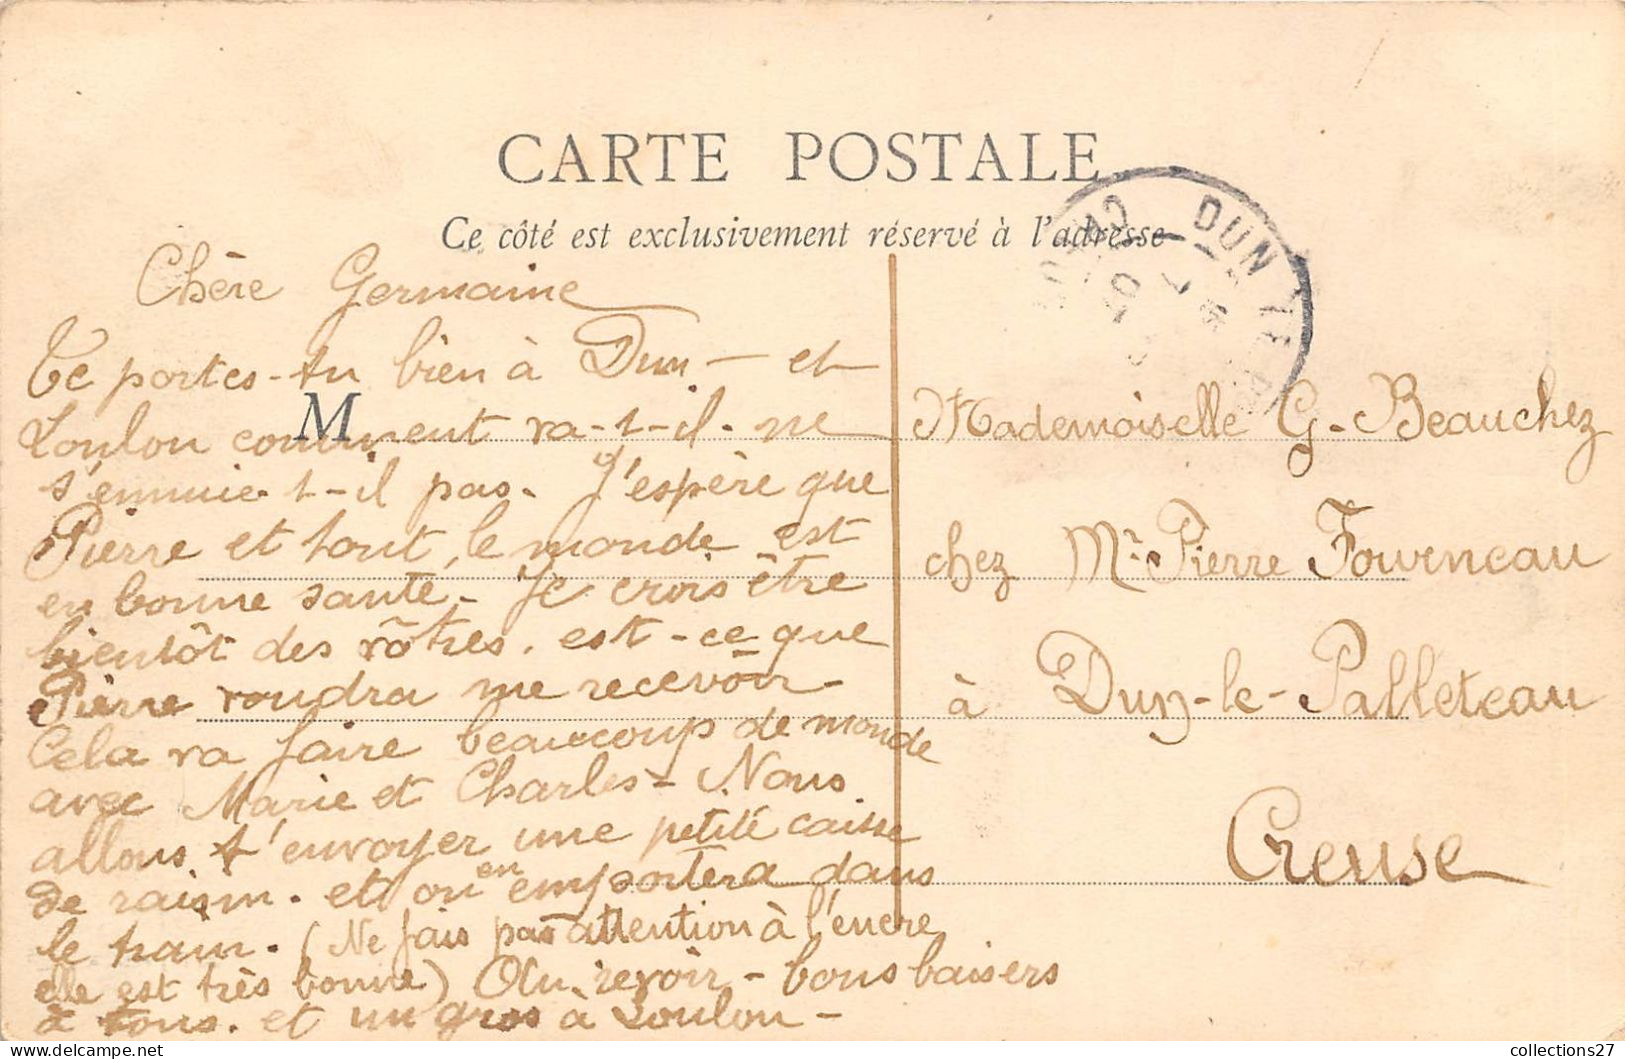 CARTE POSTALE
Ce côté est exclusivement réservé à l'adresse
DUN
Chère Germaine
Te portes-tu bien à Dun - et
Loulou comment va-t-il. ne
s'ennuie-t-il pas. J'espère que
Pierre et tout le monde est
en bonne santé - Je crois être
bientôt des vôtres. est-ce que
Pierre voudra me recevoir -
Cela va faire beaucoup de monde
avec Marie et Charles - Nous
allons t'envoyer une petite caisse
de raisin. et on en emportera dans
le train. (Ne fais pas attention à l'encre
elle est très bonne) Au revoir - bons baisers
à tous. et un gros à Loulou -
M
Mademoiselle G. Beauchez
chez Mr Pierre Fourneau
à Dun-le-Palleteau
Creuse
collections27